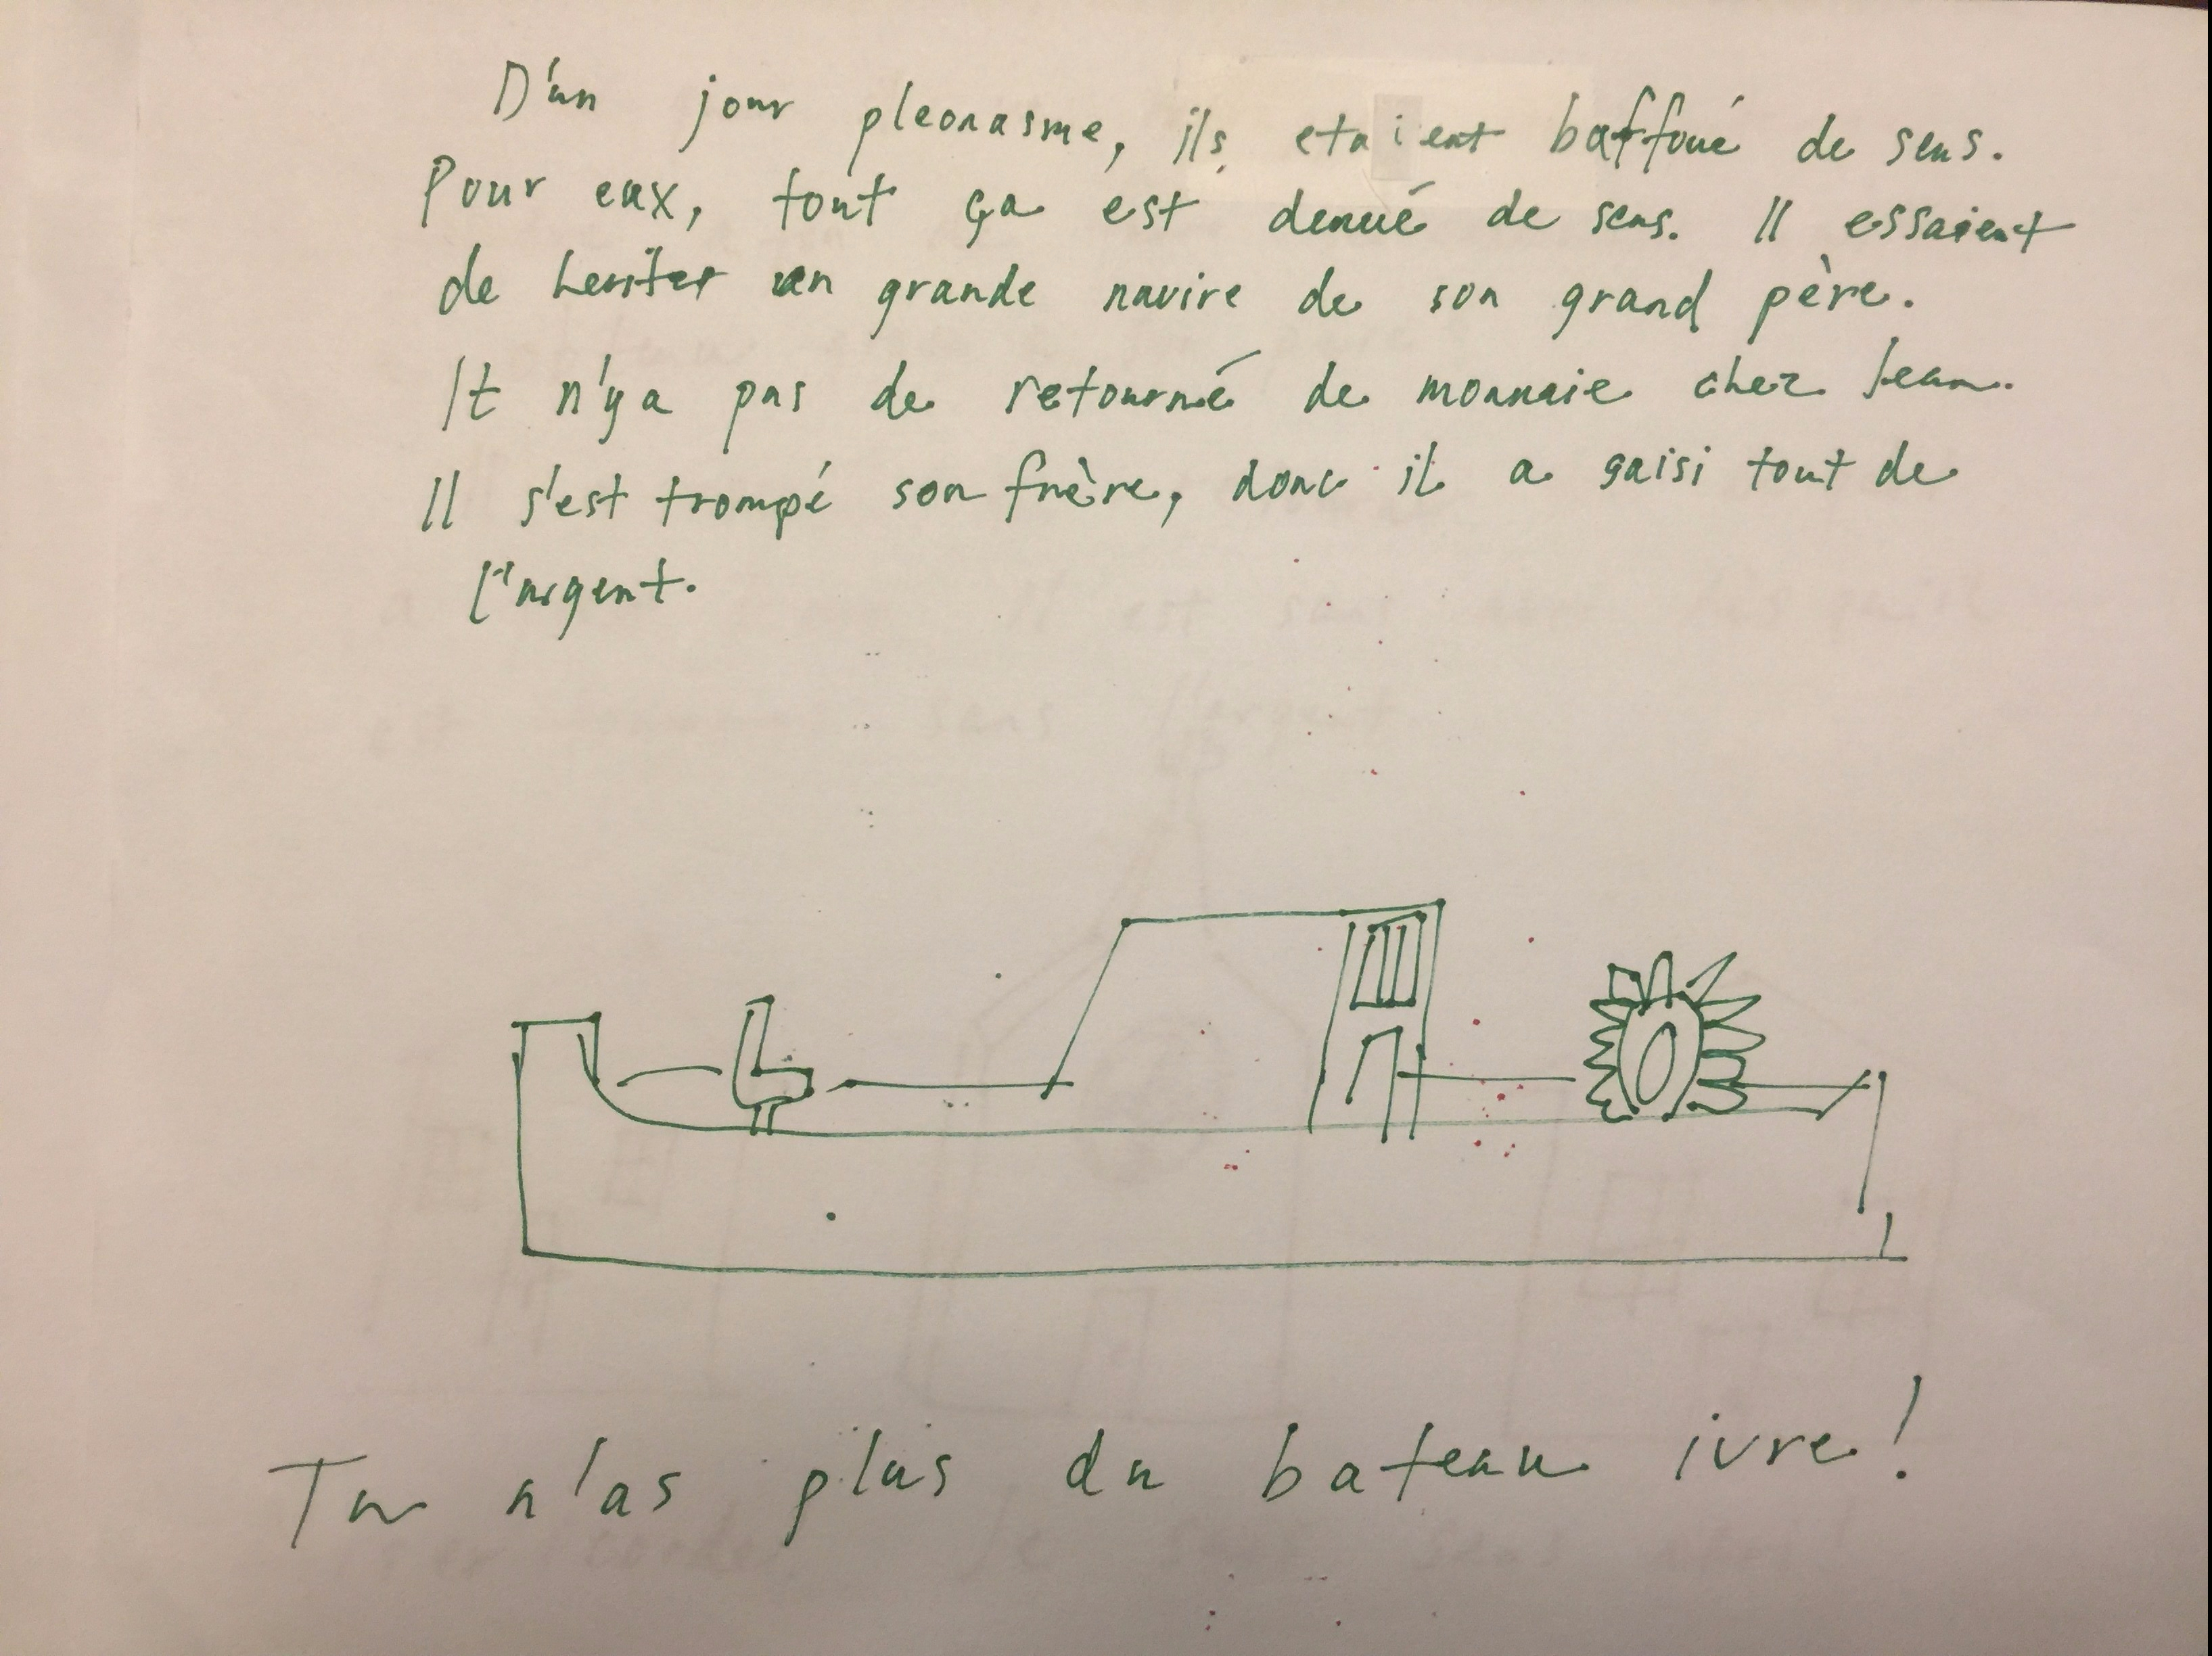 D'un jour pleonasme, ils etaient baffoué de sens.
Pour eux, tout ça est denué de sens. Il essaient
de heriter un grande navire de son grand père.
It n'y a pas de retourné de monnaie chez Jean.
Il s'est trompé son frère, donc il a saisi tout de
l'argent.
Tu n'as plus du bateau ivre!